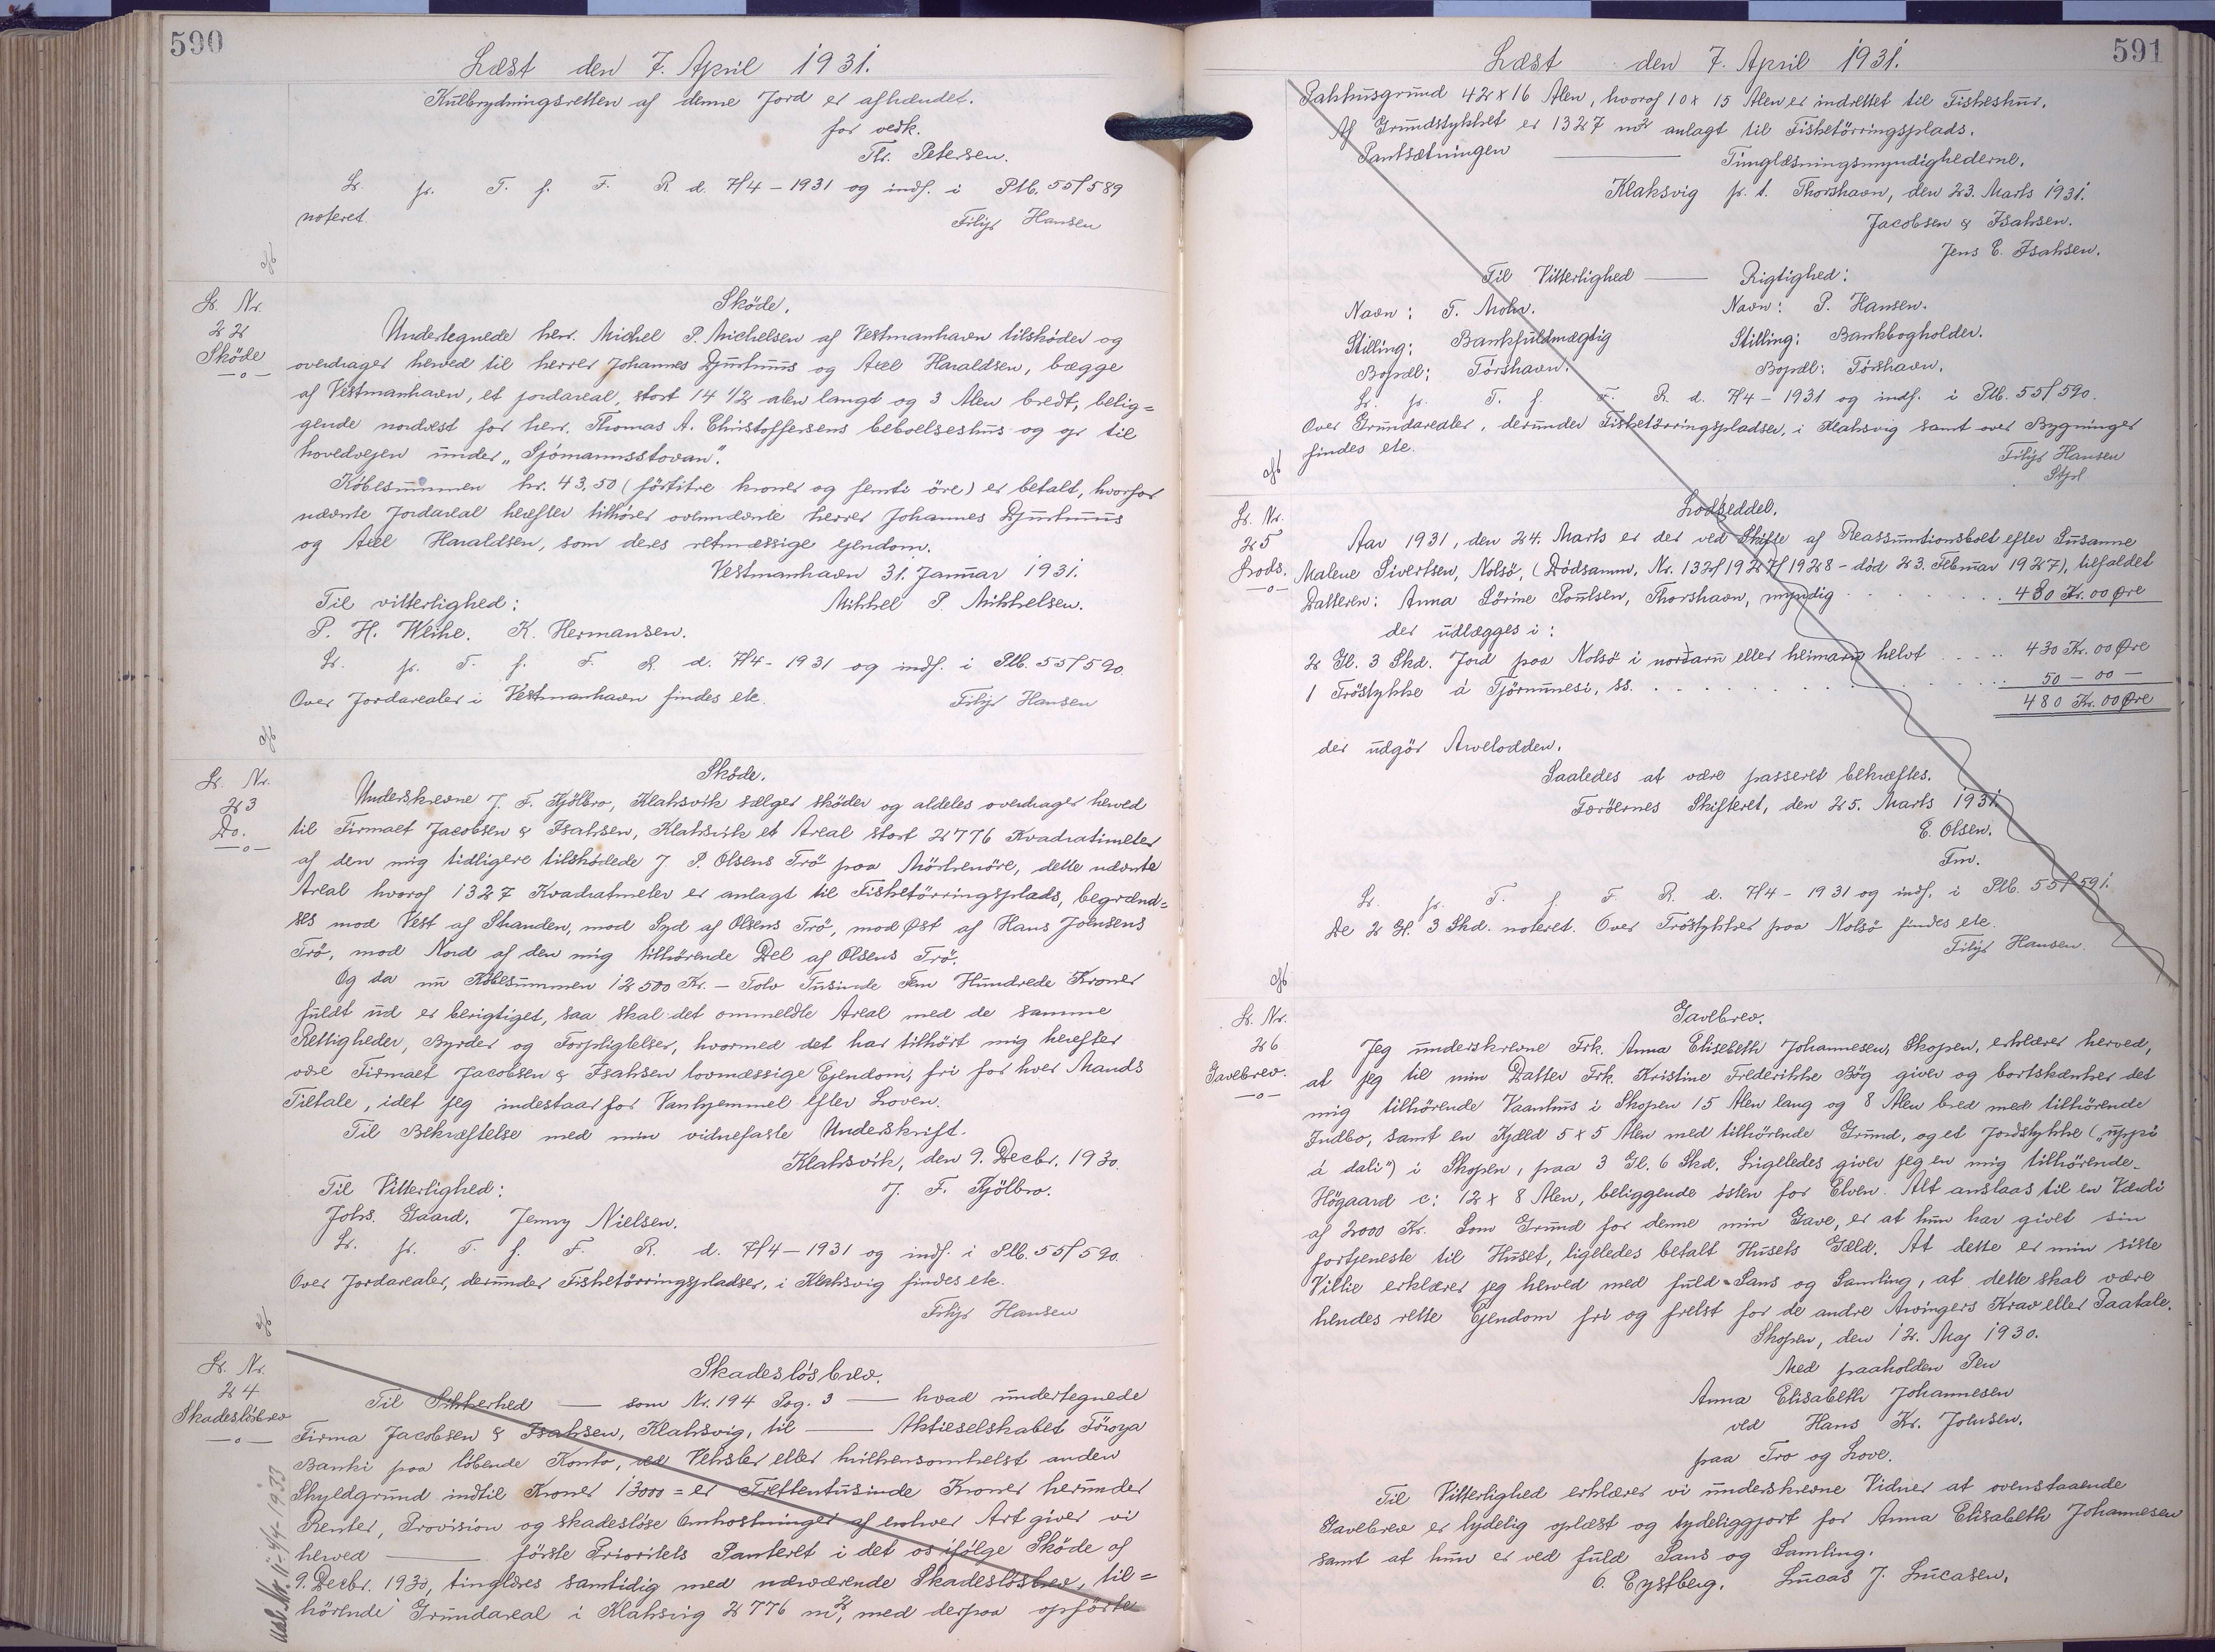 590
Læst den 7. April 1931.
Kulbrydningsretten af denne Jord er afhændet.
for vedk.
Thr. Petersen.
Lr. pr. T. f. F. R. d. 7/4-1931 og indf. i Ptb. 55f589
noteret.
Filip Hansen
Lr. Nr.
22
Sköde
Sköde.
Undertegnede herr. Michel P. Michelsen af Vestmanhavn tilsköder og
overdrager herved til herrer Johannes Djurhuus og Axel Haraldsen, bægge
af Vestmanhavn, et jordareal, stort 14 1/2 alen langt og 3 Alen bredt, belig=
gende nordvest for herr. Thomas A. Christoffersens beboelseshus og op til
hovedvejen under „Sjómannsstovan".
Köbesummen kr. 43,50 (förtitre kroner og femti öre) er betalt, hvorfor
nævnte Jordareal herefter tilhörer ovennævnte herrer Johannes Djurhuus
og Axel Haraldsen, som deres retmæssige ejendom.
Vestmanhavn 31. Januar 1931.
Til vitterlighed:
Mikkel P. Mikkelsen.
P. H. Weihe. K. Hermansen.
Lr. pr. T. f. F. R. d. 7/4-1931 og indf. i Ptb. 55f590.
Over Jordarealer i Vestmanhavn findes etc.
Filip Hansen
Lr. Nr.
23
Do.
Sköde.
Underskrevne J. F. Kjölbro, Klaksvik sælger sköder og aldeles overdrager herved
til Firmaet Jacobsen & Isaksen, Klaksvik et Areal stort 2776 Kvadratmeter
af den mig tidligere tilskødede J. P. Olsens Trö paa Mörkenöre, dette nævnte
Areal hvoraf 1327 Kvadratmeter er anlagt til Fisketörringsplads, begrænd=
ses mod Vest af Stranden, mod Syd af Olsens Trö, mod Øst af Hans Joensens
Trö, mod Nord af den mig tilhörende Del af Olsens Trö.
Og da nu Köbesummen 12500 Kr. - Tolv Tusinde Fem Hundrede Kroner
fuldt ud er berigtiget, saa skal det ommeldte Areal med de samme
Rettigheder, Byrder og Forpligtelser, hvormed det har tilhört mig herefter
være Firmaet Jacobsen & Isaksen lovmæssige Ejendom, fri for hver Mands
Tiltale, idet jeg indestaar for Vanhjemmel efter Loven.
Til Bekræftelse med min vidnefaste Underskrift.
Klaksvik, den 9. Decbr. 1930.
Til Vitterlighed:
J. F. Kjölbro.
Johs. Gaard. Jenny Nielsen.
Lr. pr. T. f. F. R. d. 7/4-1931 og indf. i Ptb. 55f590.
Over Jordarealer, derunder Fisketörringspladser, i Klaksvig findes etc.
Filip Hansen
Lr. Nr.
24
Skadeslösbrev
Udsl. Nr. 11-4/4-1933
Skadeslösbrev.
Til Sikkerhed — som Nr. 194 Pag. 3 — hvad undertegnede
Firma Jacobsen & Isaksen, Klaksvig, til — Aktieselskabet Föroya
Banki paa löbende Konto, ved Veksler eller hvilkensomhelst anden
Skyldgrund indtil Kroner 13000 = er Trettentusinde Kroner herunder
Renter, Provision og skadeslöse Omkostninger af enhver Art giver vi
herved — förste Prioritets Panteret i det os ifölge Sköde af
9. Decbr. 1930, tinglæses samtidig med nærværende Skadeslösbrev, til=
hörende Grundareal i Klaksvig 2776 m², med derpaa opförte
591
Læst den 7. April 1931.
Pakhusgrund 42 x 16 Alen, hvoraf 10 x 15 Alen er indrettet til Fiskeshus.
Af Grundstykket er 1327 m² anlagt til Fisketörringsplads.
Pantsætningen — Tinglæsningsmyndighederne.
Klaksvig p. t. Thorshavn, den 23. Marts 1931.
Jacobsen & Isaksen.
Jens E. Isaksen.
Til Vitterlighed — Rigtighed:
Navn: T. Mohr. Navn: P. Hansen.
Stilling: Bankfuldmægtig Stilling: Bankbogholder.
Bopæl: Tórshavn. Bopæl: Tórshavn.
Lr. pr. T. f. F. R. d. 7/4-1931 og indf. i Ptb. 55f590.
Over Grundarealer, derunder Fisketörringspladser, i Klaksvig samt over Bygninger
findes etc.
Filip Hansen
Lr. Nr.
25
Lods.
Lodseddel.
Aar 1931, den 24. Marts er der ved Skifte af Reassumtionsbolt efter Susanne
Malene Sivertsen, Nolsö, (Dödsanm. Nr. 132f1927f1928 - död 23. Februar 1927), tilfaldet
Datteren: Anna Sörine Poulsen, Thorshavn, myndig . . . 480 Kr. 00 Øre
der udlægges i:
2 Gl. 3 Skd. Jord paa Nolsö i norðaru eller heimaru helvt . . . 430 Kr. 00 Øre
1 Tröstykke á Tjörnunesi, ss. . . . 50 - 00 -
480 Kr. 00 Øre
der udgör Arvelodden.
Saaledes at være passeret bekræftes.
Færöernes Skifteret, den 25. Marts 1931.
E. Olsen.
Fm.
Lr. pr. T. f. F. R. d. 7/4-1931 og indf. i Ptb. 55f591.
De 2 Gl. 3 Skd. noteret. Over Tröstykker paa Nolsö findes etc.
Filip Hansen.
Lr. Nr.
26
Gavebrev.
Gavebrev.
Jeg underskrevne Frk. Anna Elisebeth Johannesen, Skopen, erklærer herved,
at jeg til min Datter Frk. Kristine Frederikke Bög giver og bortskænker det
mig tilhörende Vaanhus i Skopen 15 Alen lang og 8 Alen bred med tilhörende
Indbo, samt en Kjæld 5 x 5 Alen med tilhörende Grund, og et Jordstykke („uppi
á dali") i Skopen, paa 3 Gl. 6 Skd. Ligeledes giver jeg en mig tilhörende
Högaard c: 12 x 8 Alen, beliggende östen for Elven. Alt anslaas til en Værdi
af 2000 Kr. Som Grund for denne min Gave, er at hun har givet sin
fortjeneste til Huset, ligeledes betalt Husets Gæld. At dette er min siste
Villie erklærer jeg herved med fuld Sans og Samling, at dette skal være
hendes rette Ejendom fri og frelst for de andre Arvingers Krav eller Paatale.
Skopen, den 12. Maj 1930.
Med paaholden Pen
Anna Elisabeth Johannesen
ved Hans Kr. Joensen.
paa Tro og Love.
Til Vitterlighed erklærer vi underskrevne Vidner at ovenstaaende
Gavebrev er lydelig oplæst og tydeliggjort for Anna Elisabeth Johannesen
samt at hun er ved fuld Sans og Samling.
O. Eystberg. Lucas J. Lucasen.